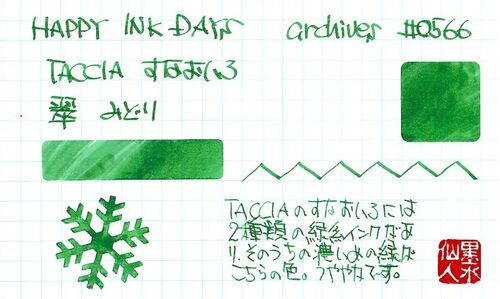 HAPPY INK DAYS archives #0566
TACCIA すなおいろ
翠 みどり
TACCIAのすなおいろには
2種類の緑系インクがあ
り、そのうちの濃いめの緑が
こちらの色。つややかです。
墨水
仙人